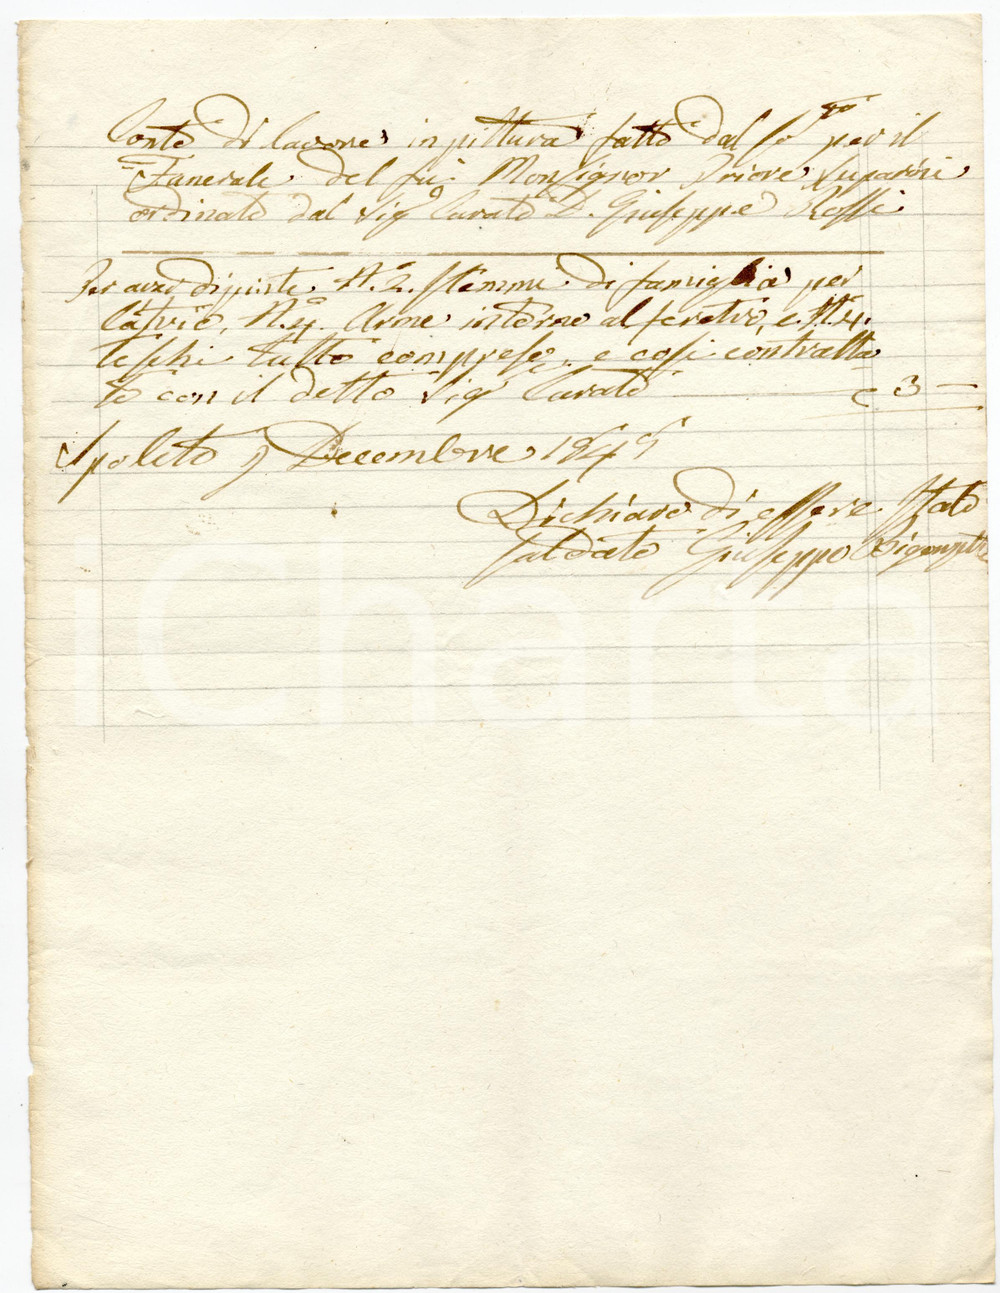 Conto di lavore in pittura fatto dal per il
Funerale del fu Monsignor Priore
ordinato dal Sig.r Curato D. Giuseppe Rossi
Per aver dipinte N. 2. Stemmi di famiglia per
N. 4. Arme intorno al feretro, e N. 4.
teschi tutto compreso, e così contratta
to con il detto Sig.r Curato 3 —
Spoleto Decembre 184
Dichiaro di essere stato
saldato Giuseppe
iCharta